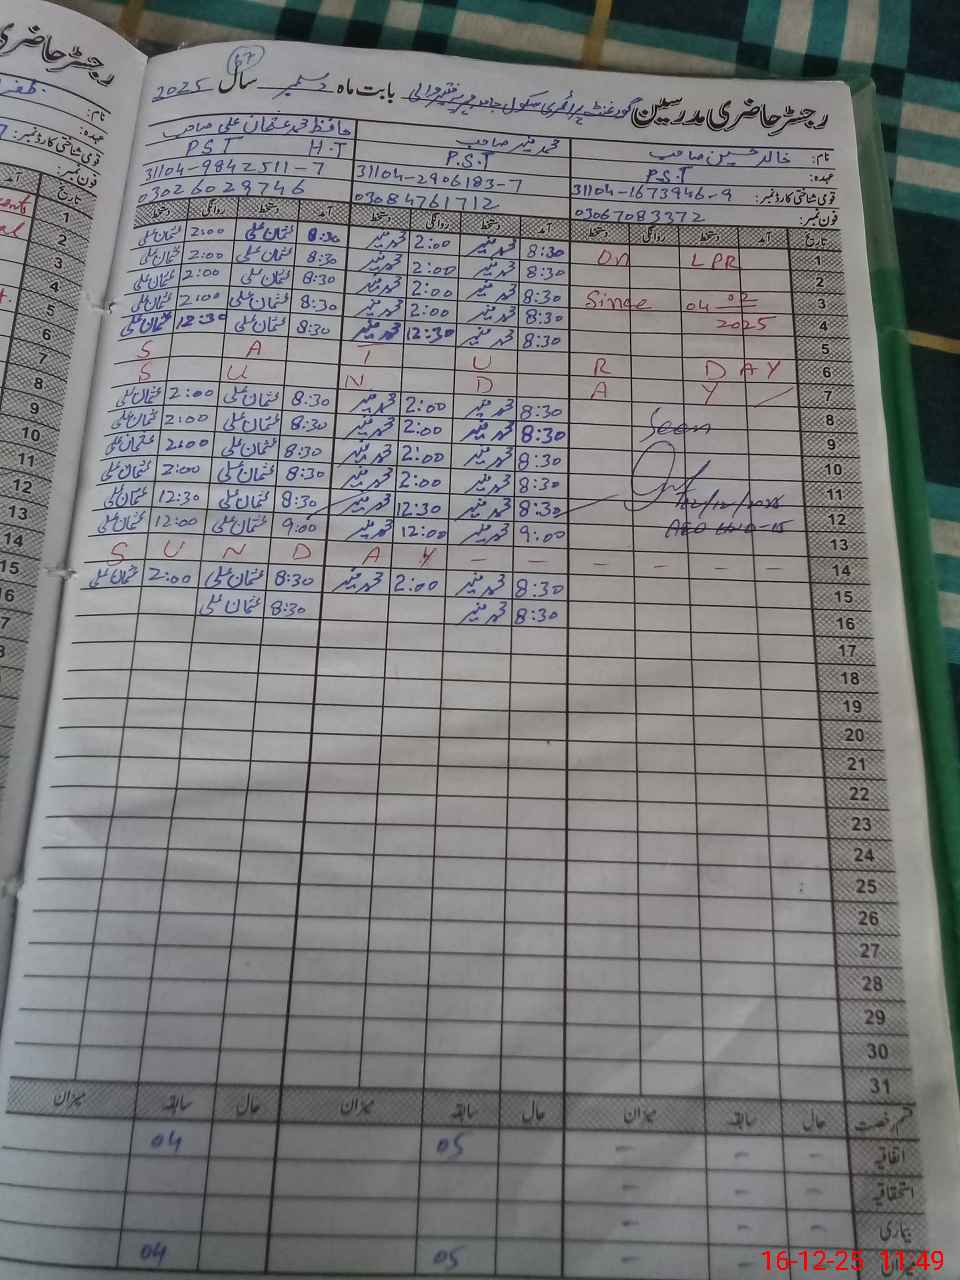 رجسٹر حاضری مدرسین گورنمنٹ پرائمری سکول بابت ماہ دسمبر سال 2025
67
نام: خالد حسین صاحب محمد منیر صاحب حافظ محمد عثمان علی صاحب
عہدہ: P.S.T P.S.T PST H.T
قومی شناختی کارڈ نمبر: 31104-1673946-9 31104-2906183-7 31104-9842511-7
فون نمبر: 03067083372 03084761712 03026029746
تاریخ آمد دستخط روانگی دستخط آمد دستخط روانگی دستخط آمد دستخط روانگی دستخط
1 On LPR 8:30 محمد منیر 2:00 محمد منیر 8:30 عثمان علی 2:00 عثمان علی
2 8:30 محمد منیر 2:00 محمد منیر 8:30 عثمان علی 2:00 عثمان علی
3 Since 04 02 8:30 محمد منیر 2:00 محمد منیر 8:30 عثمان علی 2:00 عثمان علی
4 2025 8:30 محمد منیر 2:00 محمد منیر 8:30 عثمان علی 2:00 عثمان علی
5 8:30 محمد منیر 12:30 محمد منیر 8:30 عثمان علی 12:30 عثمان علی
6 S A T U R D A Y
7 S U N D A Y
8 Seen 8:30 محمد منیر 2:00 محمد منیر 8:30 عثمان علی 2:00 عثمان علی
9 8:30 محمد منیر 2:00 محمد منیر 8:30 عثمان علی 2:00 عثمان علی
10 8:30 محمد منیر 2:00 محمد منیر 8:30 عثمان علی 2:00 عثمان علی
11 8:30 محمد منیر 2:00 محمد منیر 8:30 عثمان علی 2:00 عثمان علی
12 8:30 محمد منیر 12:30 محمد منیر 8:30 عثمان علی 12:30 عثمان علی
13 AEO 9:00 محمد منیر 12:00 محمد منیر 9:00 عثمان علی 12:00 عثمان علی
14 S U N D A Y - - - - - -
15 8:30 محمد منیر 2:00 محمد منیر 8:30 عثمان علی 2:00 عثمان علی
16 8:30 محمد منیر 8:30 عثمان علی
17
18
19
20
21
22
23
24
25
26
27
28
29
30
31
قسم رخصت حال سابقہ میزان حال سابقہ میزان حال سابقہ میزان
اتفاقیہ - - - 05 04
استحقاقیہ - - -
بیماری - - -
- - 05 04
16-12-25 11:49